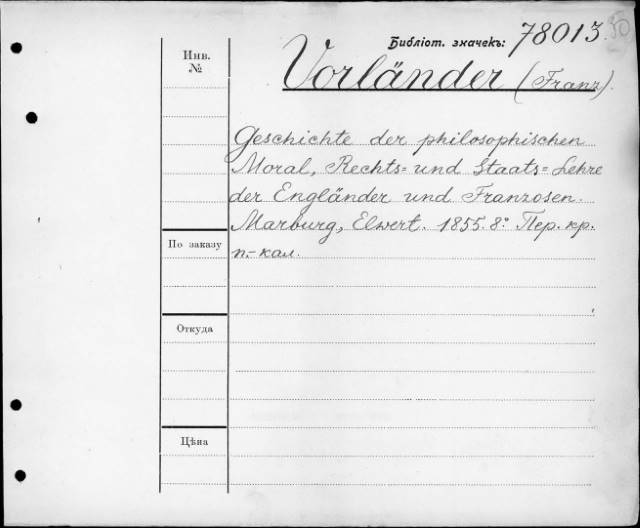 Библіот. значекъ: 78013. 50
Инв.
№
Vorländer (Franz).
Geschichte der philosophischen
Moral, Rechts= und Staats=Lehre
der Engländer und Franzosen.
Marburg, Elwert. 1855. 8° Пер. кр.
п.-кал.
По заказу
Откуда
Цѣна